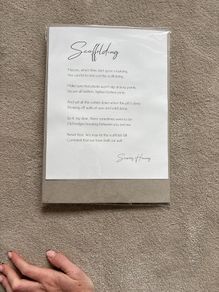 Scaffolding
Masons, when they start upon a building,
Are careful to test out the scaffolding;
Make sure that planks won't slip at busy points,
Secure all ladders, tighten bolted joints.
And yet all this comes down when the job's done
Showing off walls of sure and solid stone.
So if, my dear, there sometimes seem to be
Old bridges breaking between you and me
Never fear. We may let the scaffolds fall
Confident that we have built our wall.
Seamus Heaney